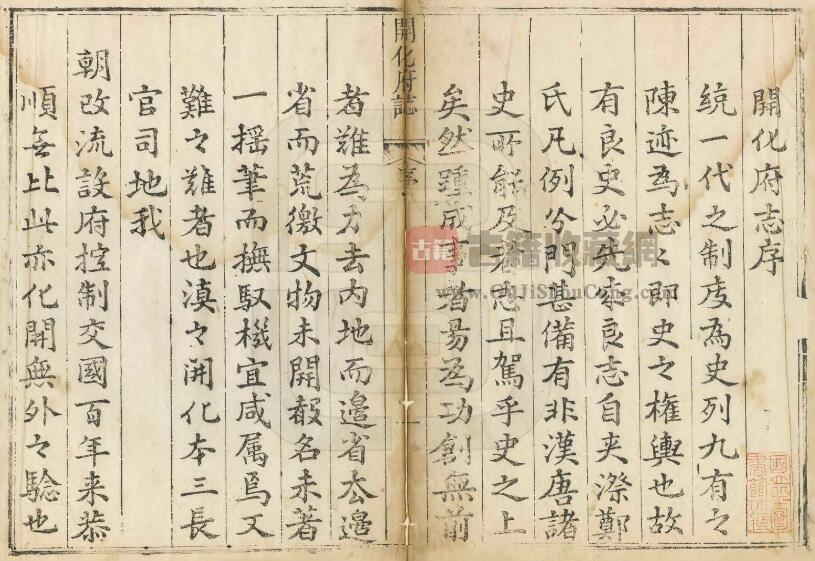 開化府志序
統一代之制度為史列九有之
陳迹為志々即史之權輿也故
有良史必先求良志自夾漈鄭
氏凡例分門甚備有非漢唐諸
史所能及者志且駕乎史之上
矣然踵成事者易為功創無前
開化府誌
序
一
者難為力去內地而邊省去邊
省而荒徼文物未開聲名未著
一揺筆而撫馭機宜咸属焉又
難之難者也滇之開化本三長
官司地我
朝改流設府控制交國百年来恭
順無比此亦化開無外之驗也
古籍
古籍收藏網
www.GuJiShouCang.com